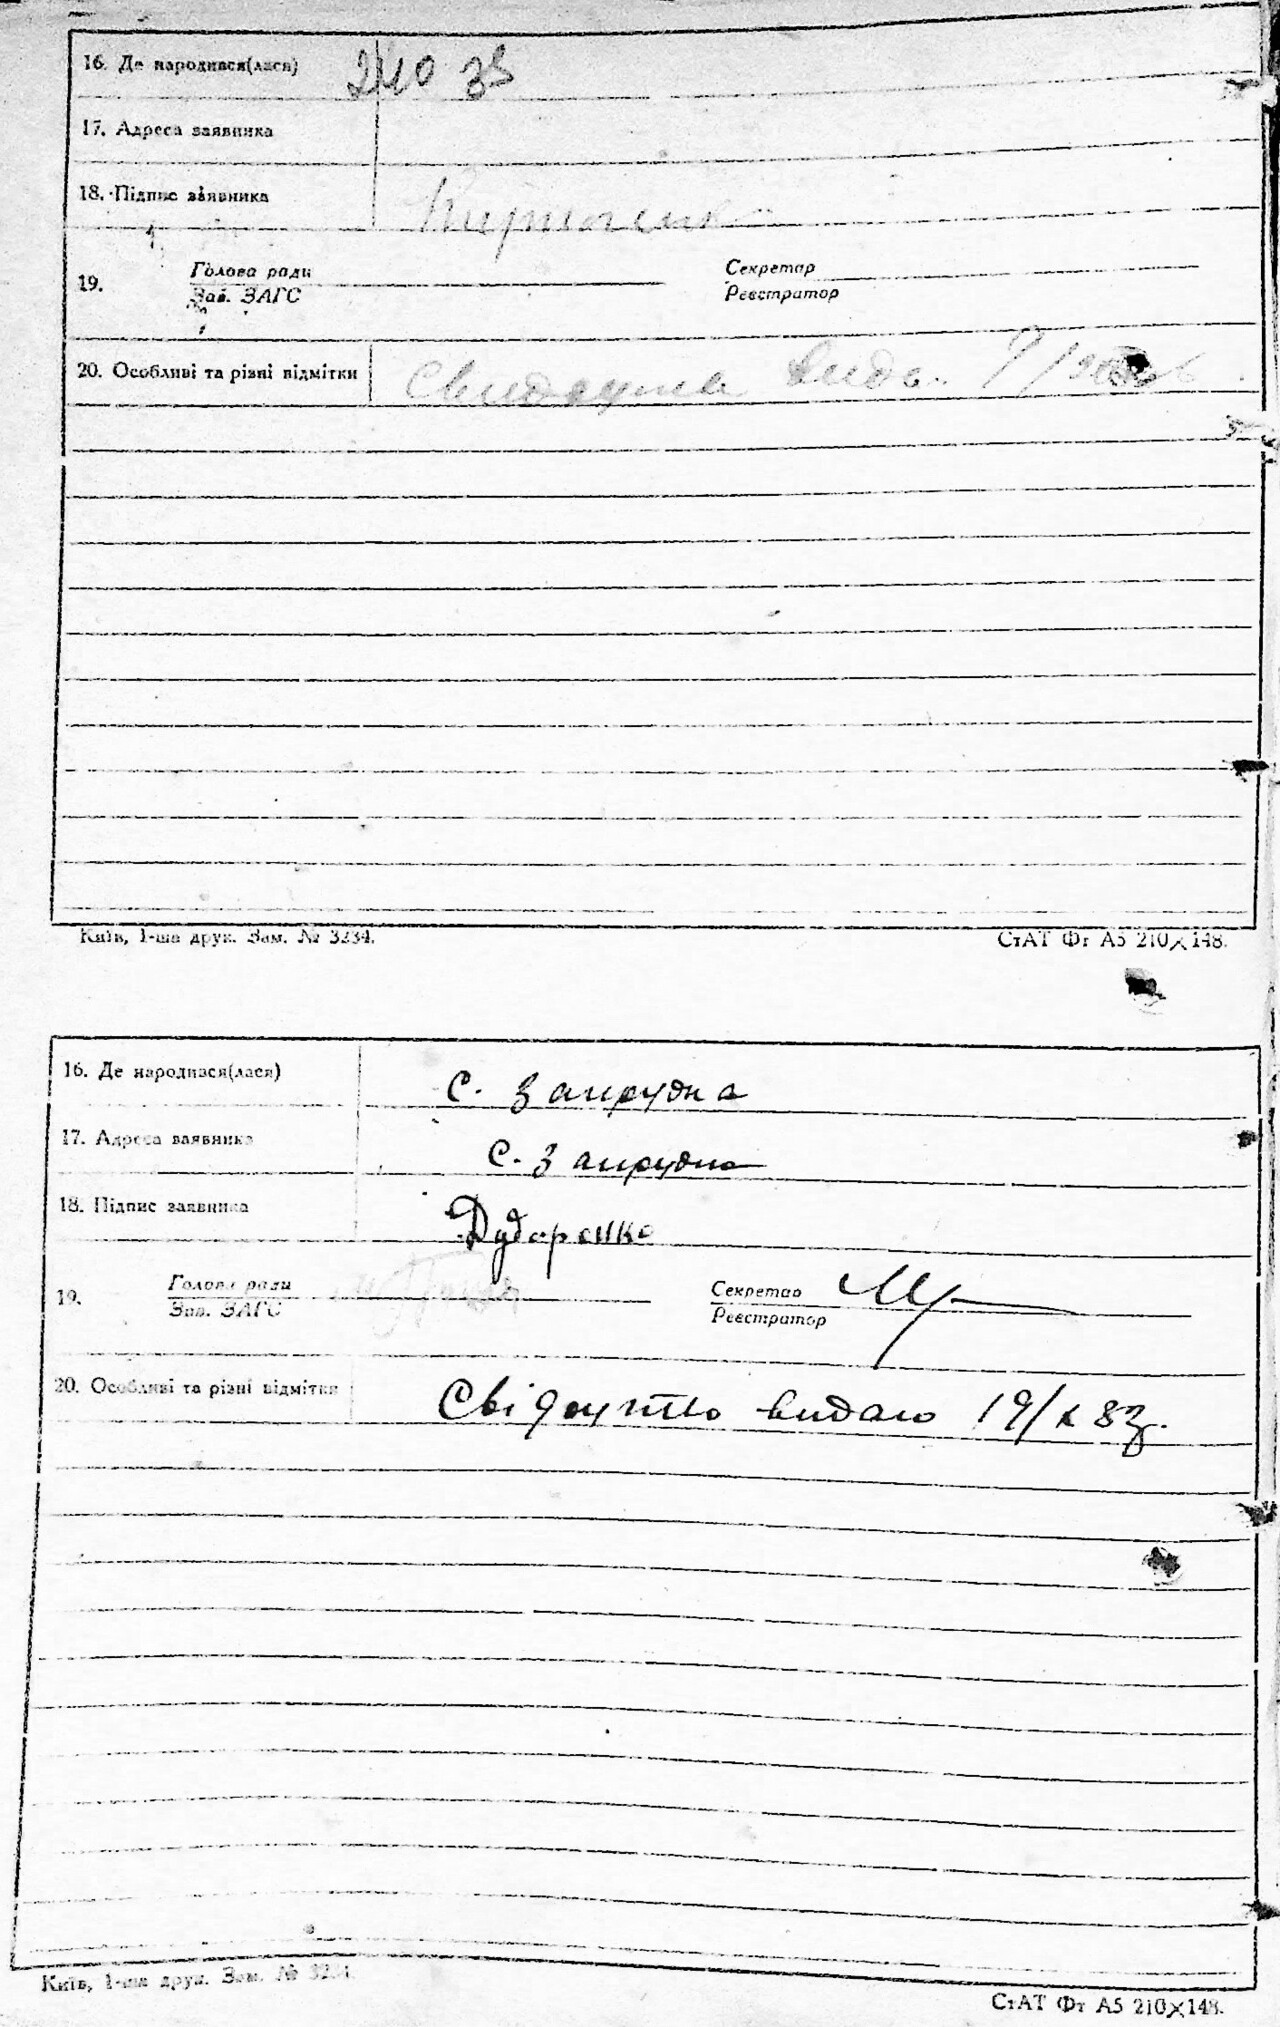 16. Де народився(лася) 240 зв
17. Адреса заявника
18. Підпис заявника
19. Голова ради Секретар
Зав. ЗАГС Реєстратор
20. Особливі та різні відмітки
Київ, 1-ша друк. Зам. № 3234. СтАТ Фт А5 210×148.
16. Де народився(лася) с. Запрудна
17. Адреса заявника с. Запрудна
18. Підпис заявника Дударенко
19. Голова ради Секретар
Зав. ЗАГС Реєстратор
20. Особливі та різні відмітки Свідоцтво видано 19/X 83.
Київ, 1-ша друк. Зам. № 3234. СтАТ Фт А5 210×148.